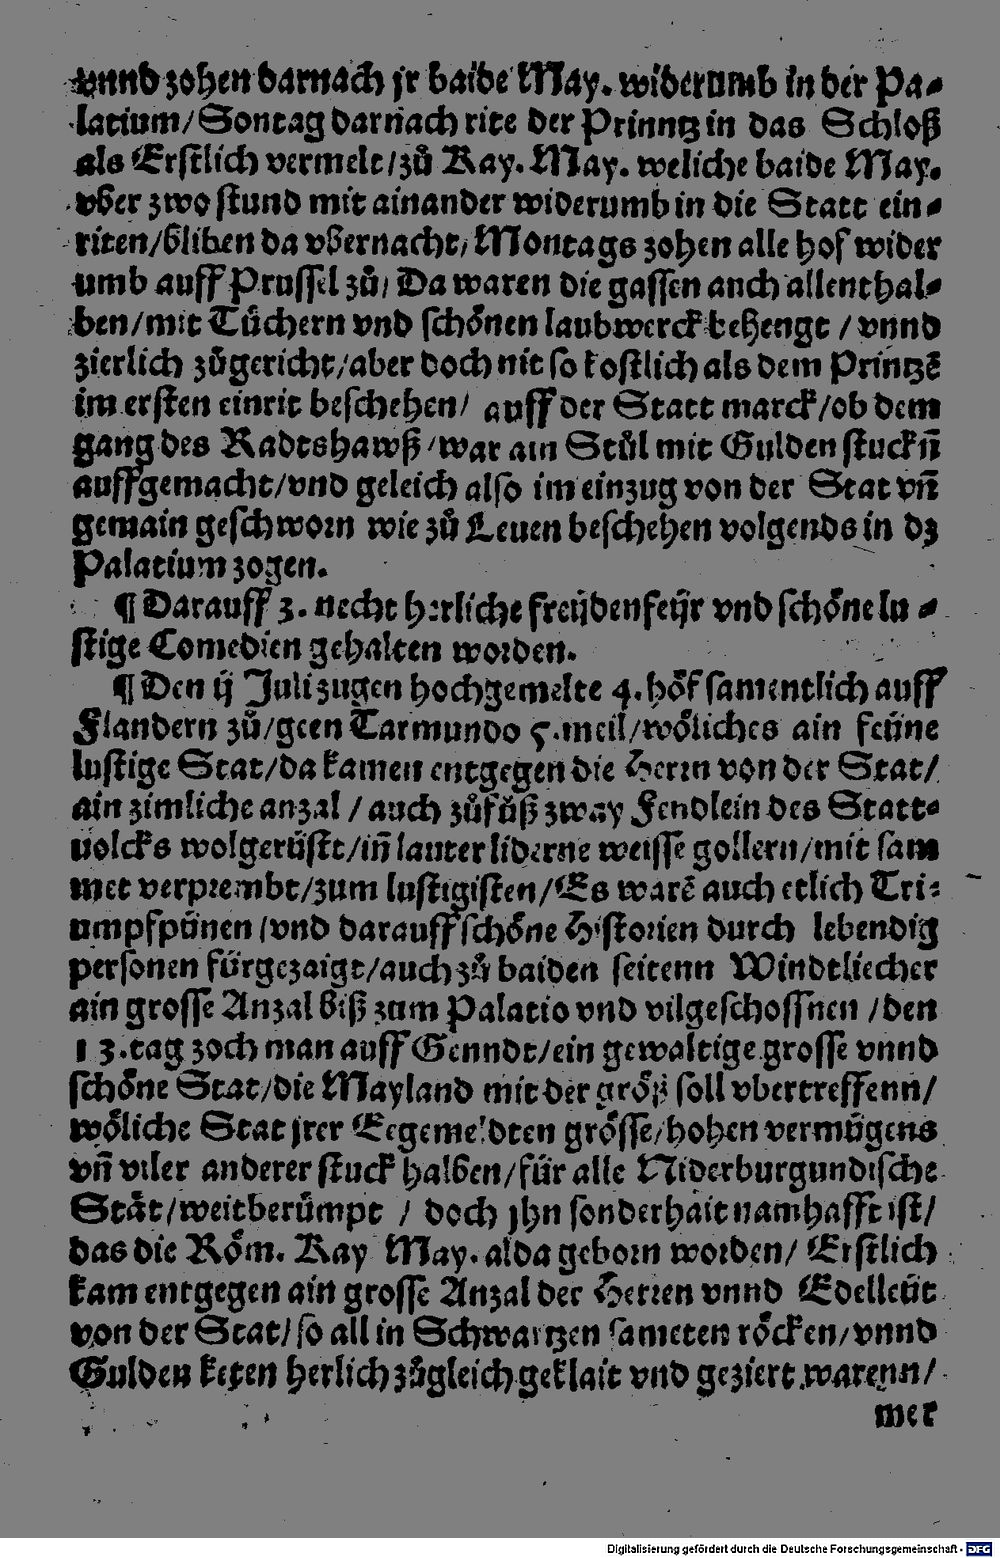 vnnd zohen darnach jr baide May. widerumb in der Pa⸗
latium/Sontag darnach rite der Prinntz in das Schloß
als Erstlich vermelt/zů Kay. May. weliche baide May.
vber zwo stund mit ainander widerumb in die Statt ein⸗
riten/bliben da vbernacht/Montags zohen alle hof wider
umb auff Prussel zů/Da waren die gassen auch allenthal⸗
ben/mit Tůchern vnd schönen laubwerck behengt/vnnd
zierlich zůgericht/aber doch nit so kostlich als dem Printzē
im ersten einrit beschehen/ auff der Statt marck/ob dem
gang des Radtshawß/war ain Stůl mit Gulden stuckñ
auffgemacht/vnd geleich also im einzug von der Stat vñ
gemain geschworn wie zů Leuen beschehen volgends in dz
Palatium zogen.
¶ Darauff 3. necht herliche freijdenfeijr vnd schöne lu⸗
stige Comedien gehalten worden.
¶ Den ij Juli zugen hochgemelte 4. höf samentlich auff
Flandern zů/geen Tarmundo 5.meil/wöliches ain feüne
lustige Stat/da kamen entgegen die Herrn von der Stat/
ain zimliche anzal/auch zůfůß zway Fendlein des Statt⸗
uolcks wolgerüst/iñ lauter liderne weisse gollern/mit sam
met verprembt/zum lustigisten/Es warē auch etlich Tri⸗
umpfpünen/vnd darauff schöne Historien durch lebendig
personen fürgezaigt/auch zů baiden seitenn Windtliecher
ain grosse Anzal biß zum Palatio vnd vilgeschossnen/den
13.tag zoch man auff Genndt/ein gewaltige grosse vnnd
schöne Stat/die Mayland mit der größ soll vbertreffenn/
wöliche Stat jrer Eegemeldten grösse/hohen vermügens
vñ viler anderer stuck halben/für alle Niderburgundische
Stät/weitberümpt / doch jhn sonderhait namhafft ist/
das die Röm. Kay May. alda geborn worden/ Erstlich
kam entgegen ain grosse Anzal der Herren vnnd Edelleüt
von der Stat/so all in Schwartzen sameten röcken/vnnd
Gulden keten herlich zůgleich geklait vnd geziert warenn/
mer
Digitalisierung gefördert durch die Deutsche Forschungsgemeinschaft - DFG